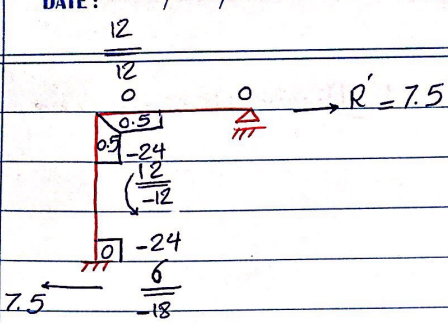 DATE: / /
12
12
0 0
R' = 7.5
0.5
0.5 -24
12
-12
0 -24
6
-18
7.5